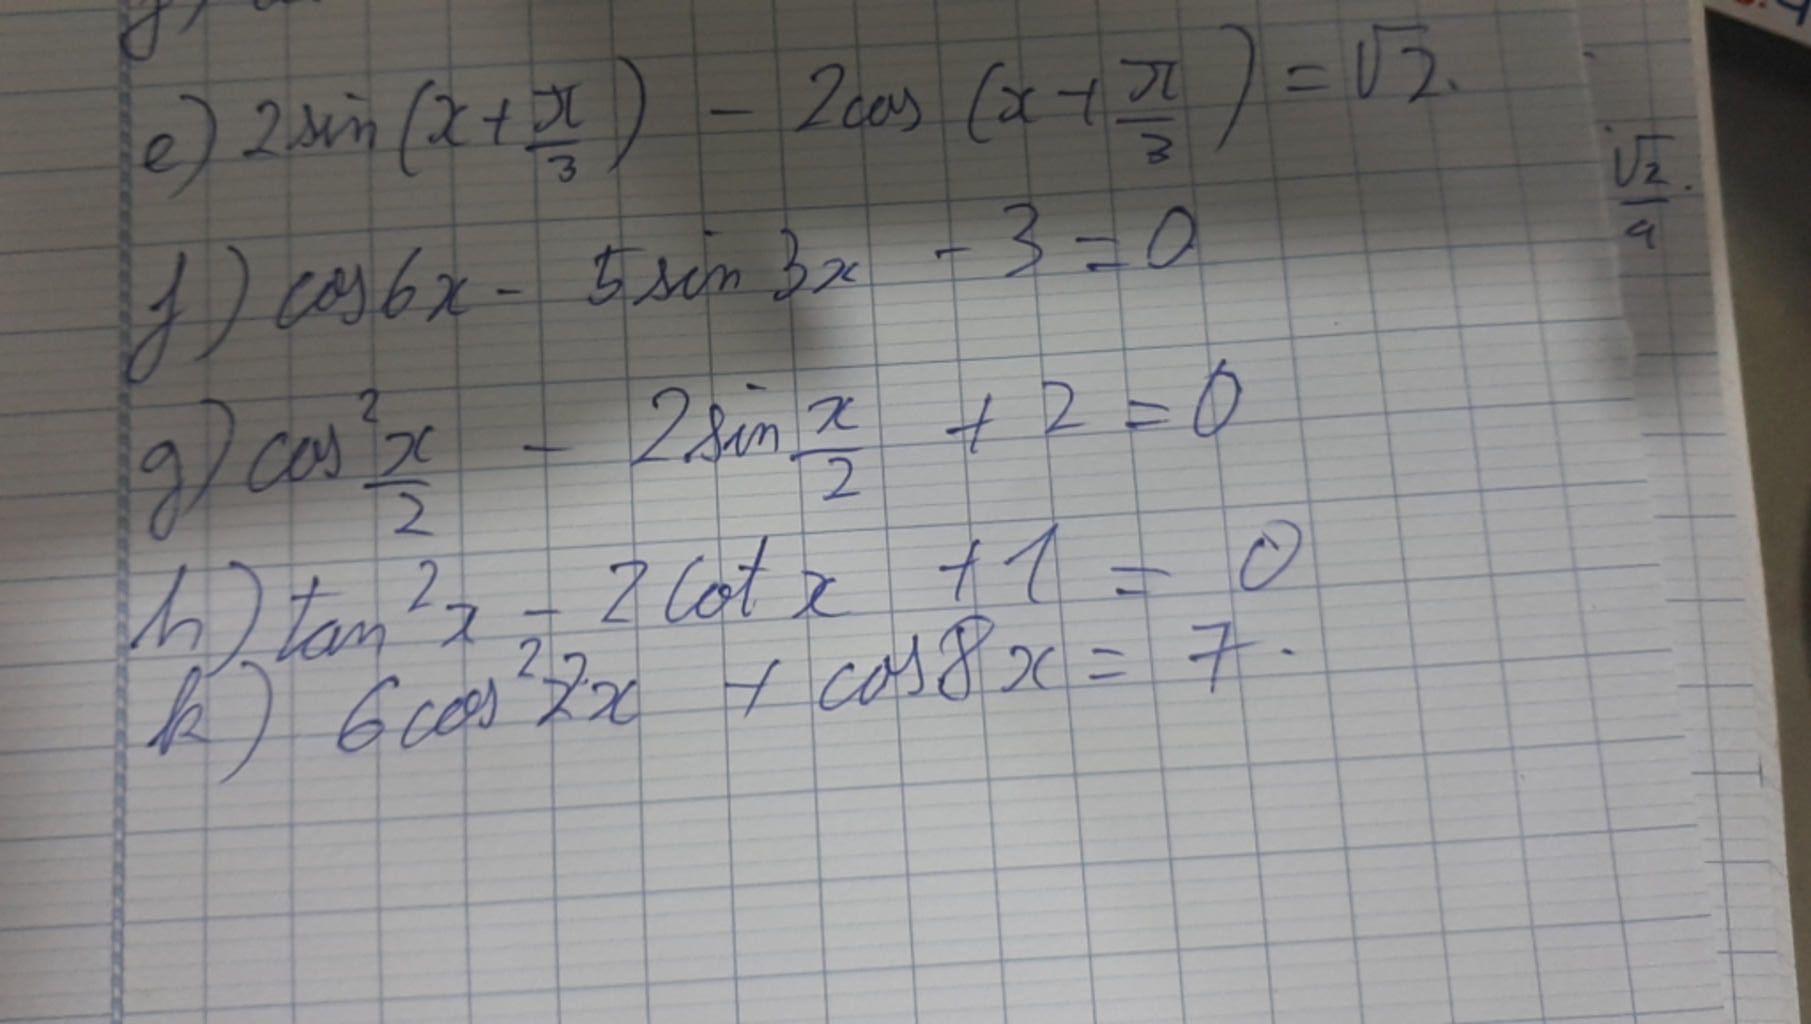 e) 2sin(x+π/3) - 2cos(x+π/3) = √2.
√2/4.
f) cos6x - 5sin3x - 3 = 0
g) cos² x/2 - 2sin x/2 + 2 = 0
h) tan²x - 2cotx + 1 = 0
k) 6cos²2x + cos8x = 7.